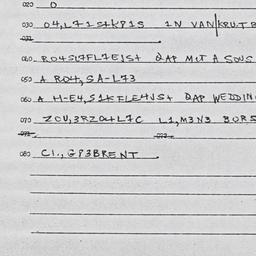 020 O
030 04,L71StKP1S IN VAN/KRUTB
031
040 RO4S17FL7EJSt QAP MET A SOUS
050 A RO4,SA-L73
060 A H-E4,S1KFLE4JSt QAP WEDDIN
070 ZOU,3RZO4L7C L1,M3N3 BORS
071 072
080 C1.,GP3BRENT.